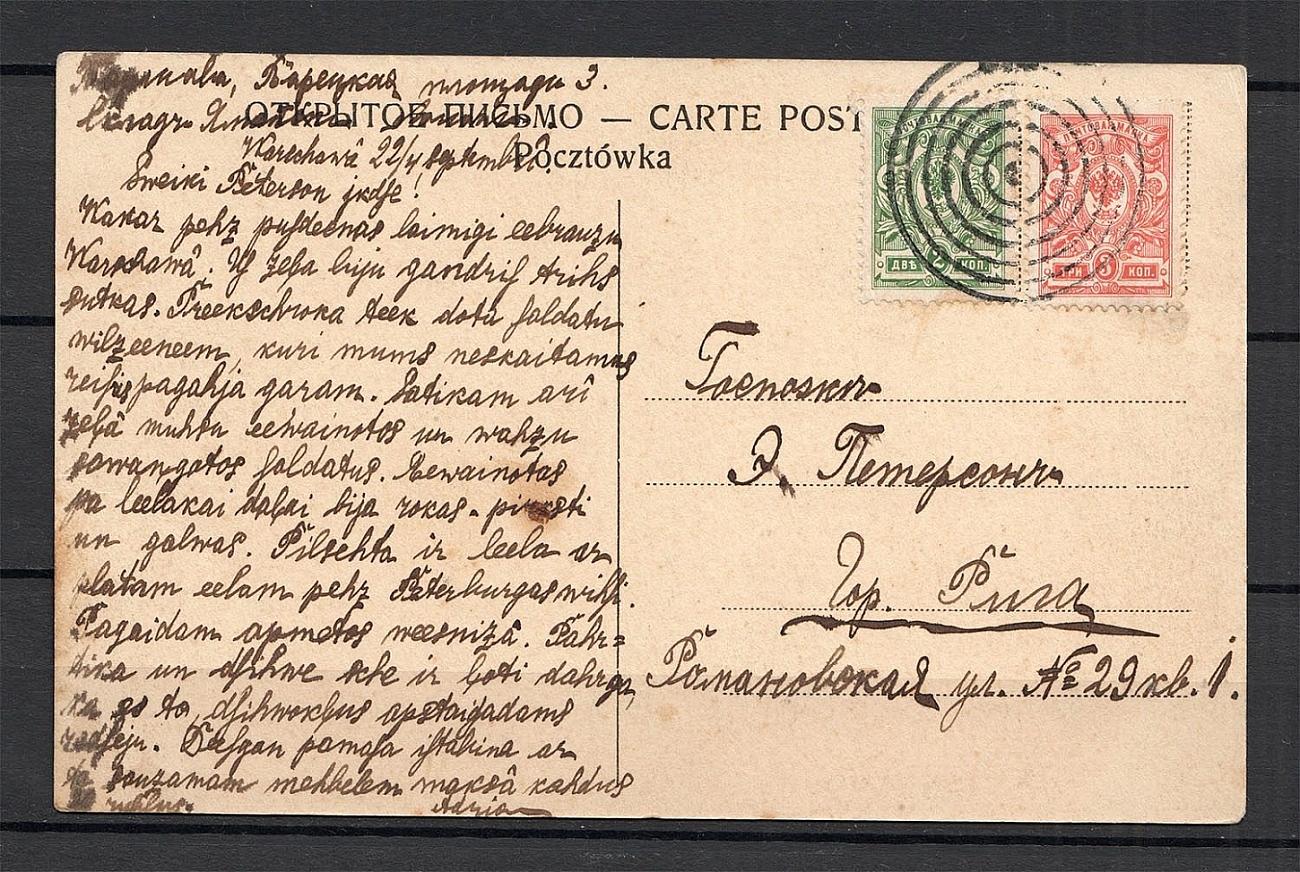 Варецкая площадь 3.
ОТКРЫТОЕ ПИСЬМО — CARTE POST
Pocztówka
Warschawâ 22/IX septemberî.
Sweiki Peterson jkdse!
Wakar pehz pusdeenas laimigi eebrauzu
Warschawâ. Iſ zeļa biju gandriſ trihs
sutkas. Preekschroka teek dota ſaldatu
wilzeeneem, kuri mums neskaitamas
reiſes pagahja garam. Satikam arî
zeļâ muhsu eewainotos un wahzu
sawangotos ſaldatus. Eewainotas
pa leelakai daļai bija rokas - pirksti
un galwas. Pilsehta ir leela ar
platam eelam pehz Peterburgas wihſi.
Pagaidam apmetos weesnizâ. Pahr=
tika un dſihwe sche ir ļoti dahrga,
ka es to, dſihwokļus apstaigadams
redſeju. Deesgan pamaſa iſtabina ar
to sauzamam mehbelem maksâ kahdus
rubļus.
ПОЧТОВАЯ МАРКА
ДВѢ 2 КОП.
ПОЧТОВАЯ МАРКА
ТРИ 3 КОП.
Господину
Э. Петерсонъ
Гор. Рига
Романовская ул. № 29 кв. 1.